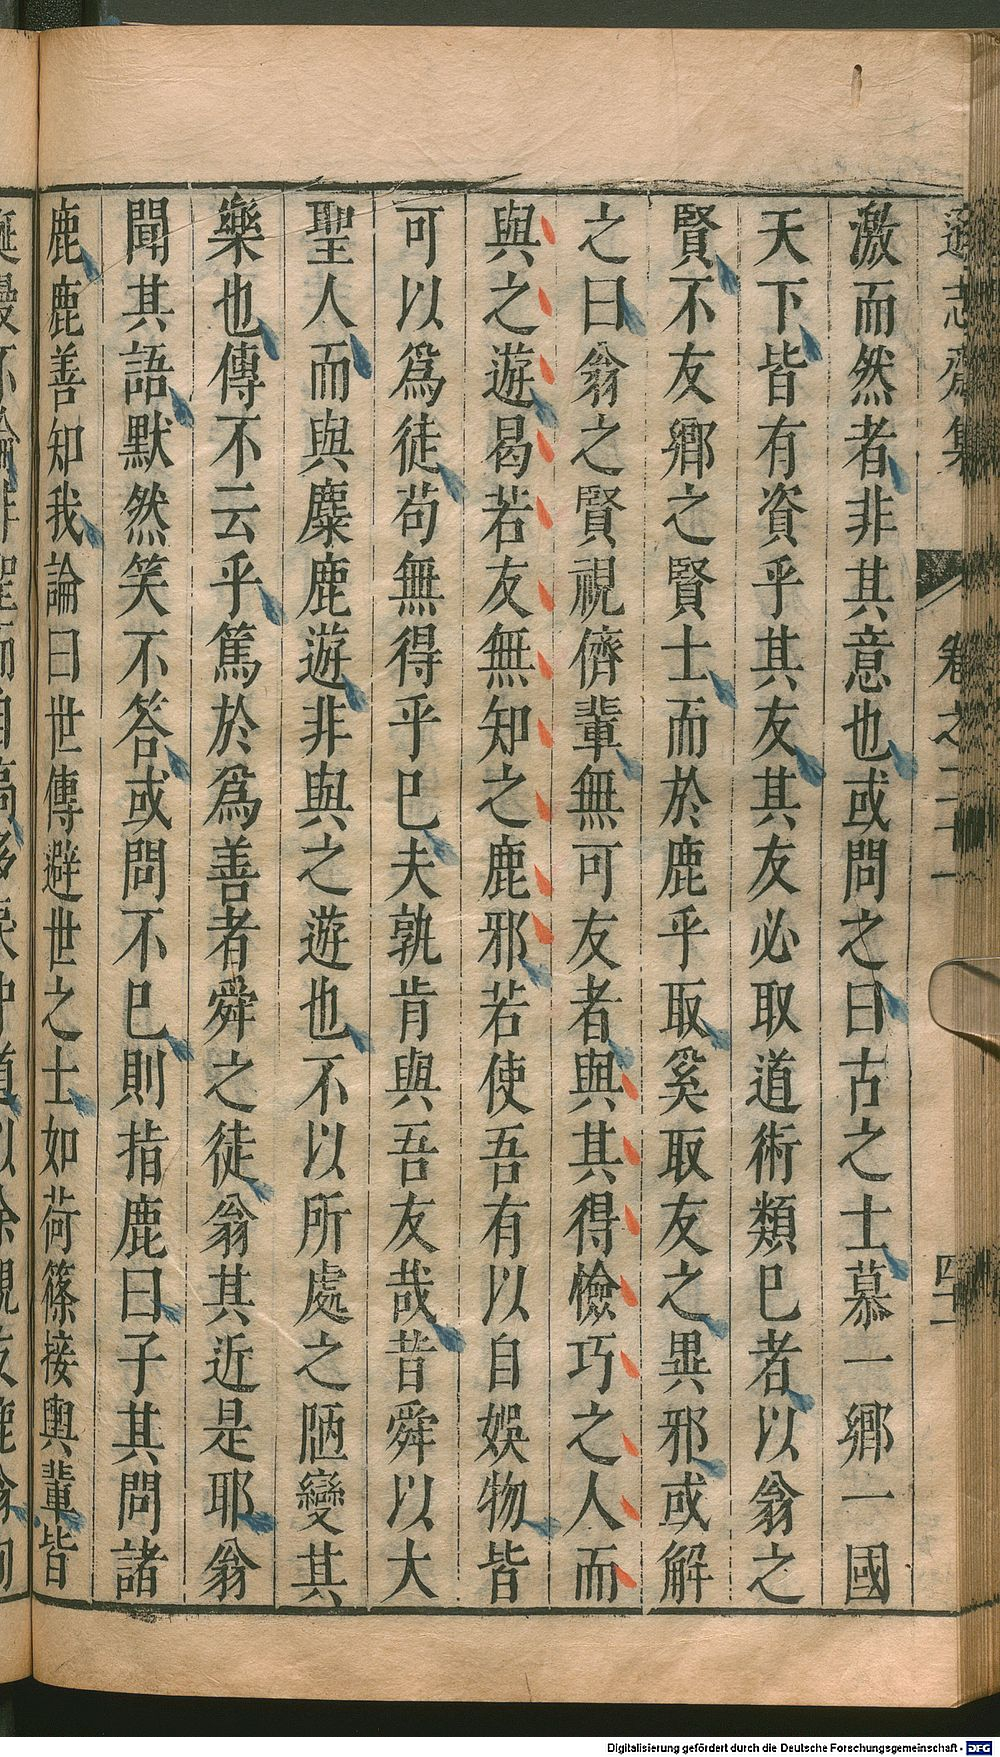 激而然者非其意也或問之曰古之士慕一鄉一國
天下皆有資乎其友其友必取道術類巳者以翁之
賢不友鄉之賢士而於鹿乎取奚取友之異邪或解
之曰翁之賢視儕輩無可友者與其得憸巧之人而
與之遊曷若友無知之鹿邪若使吾有以自娛物皆
可以爲徒苟無得乎巳夫孰肯與吾友哉昔舜以大
聖人而與麋鹿遊非與之遊也不以所處之陋變其
樂也傳不云乎篤於爲善者舜之徒翁其近是耶翁
聞其語默然笑不答或問不巳則指鹿曰子其問諸
鹿鹿善知我論曰世傳避世之士如荷篠接輿輩皆
Digitalisierung gefördert durch die Deutsche Forschungsgemeinschaft - DFG